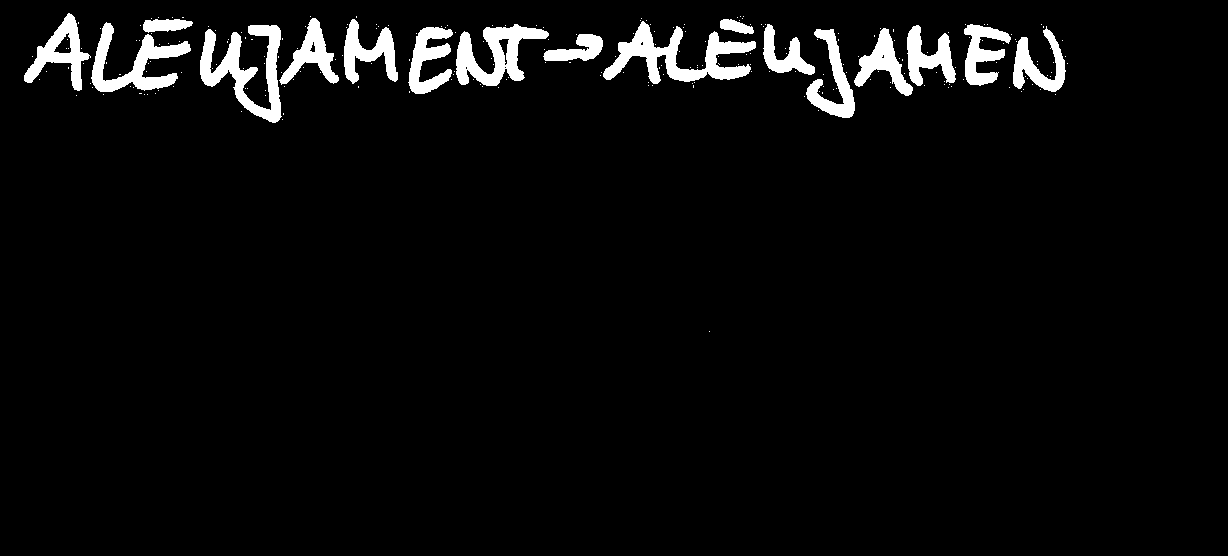 ALEUJAMENT→ALEUJAMEN